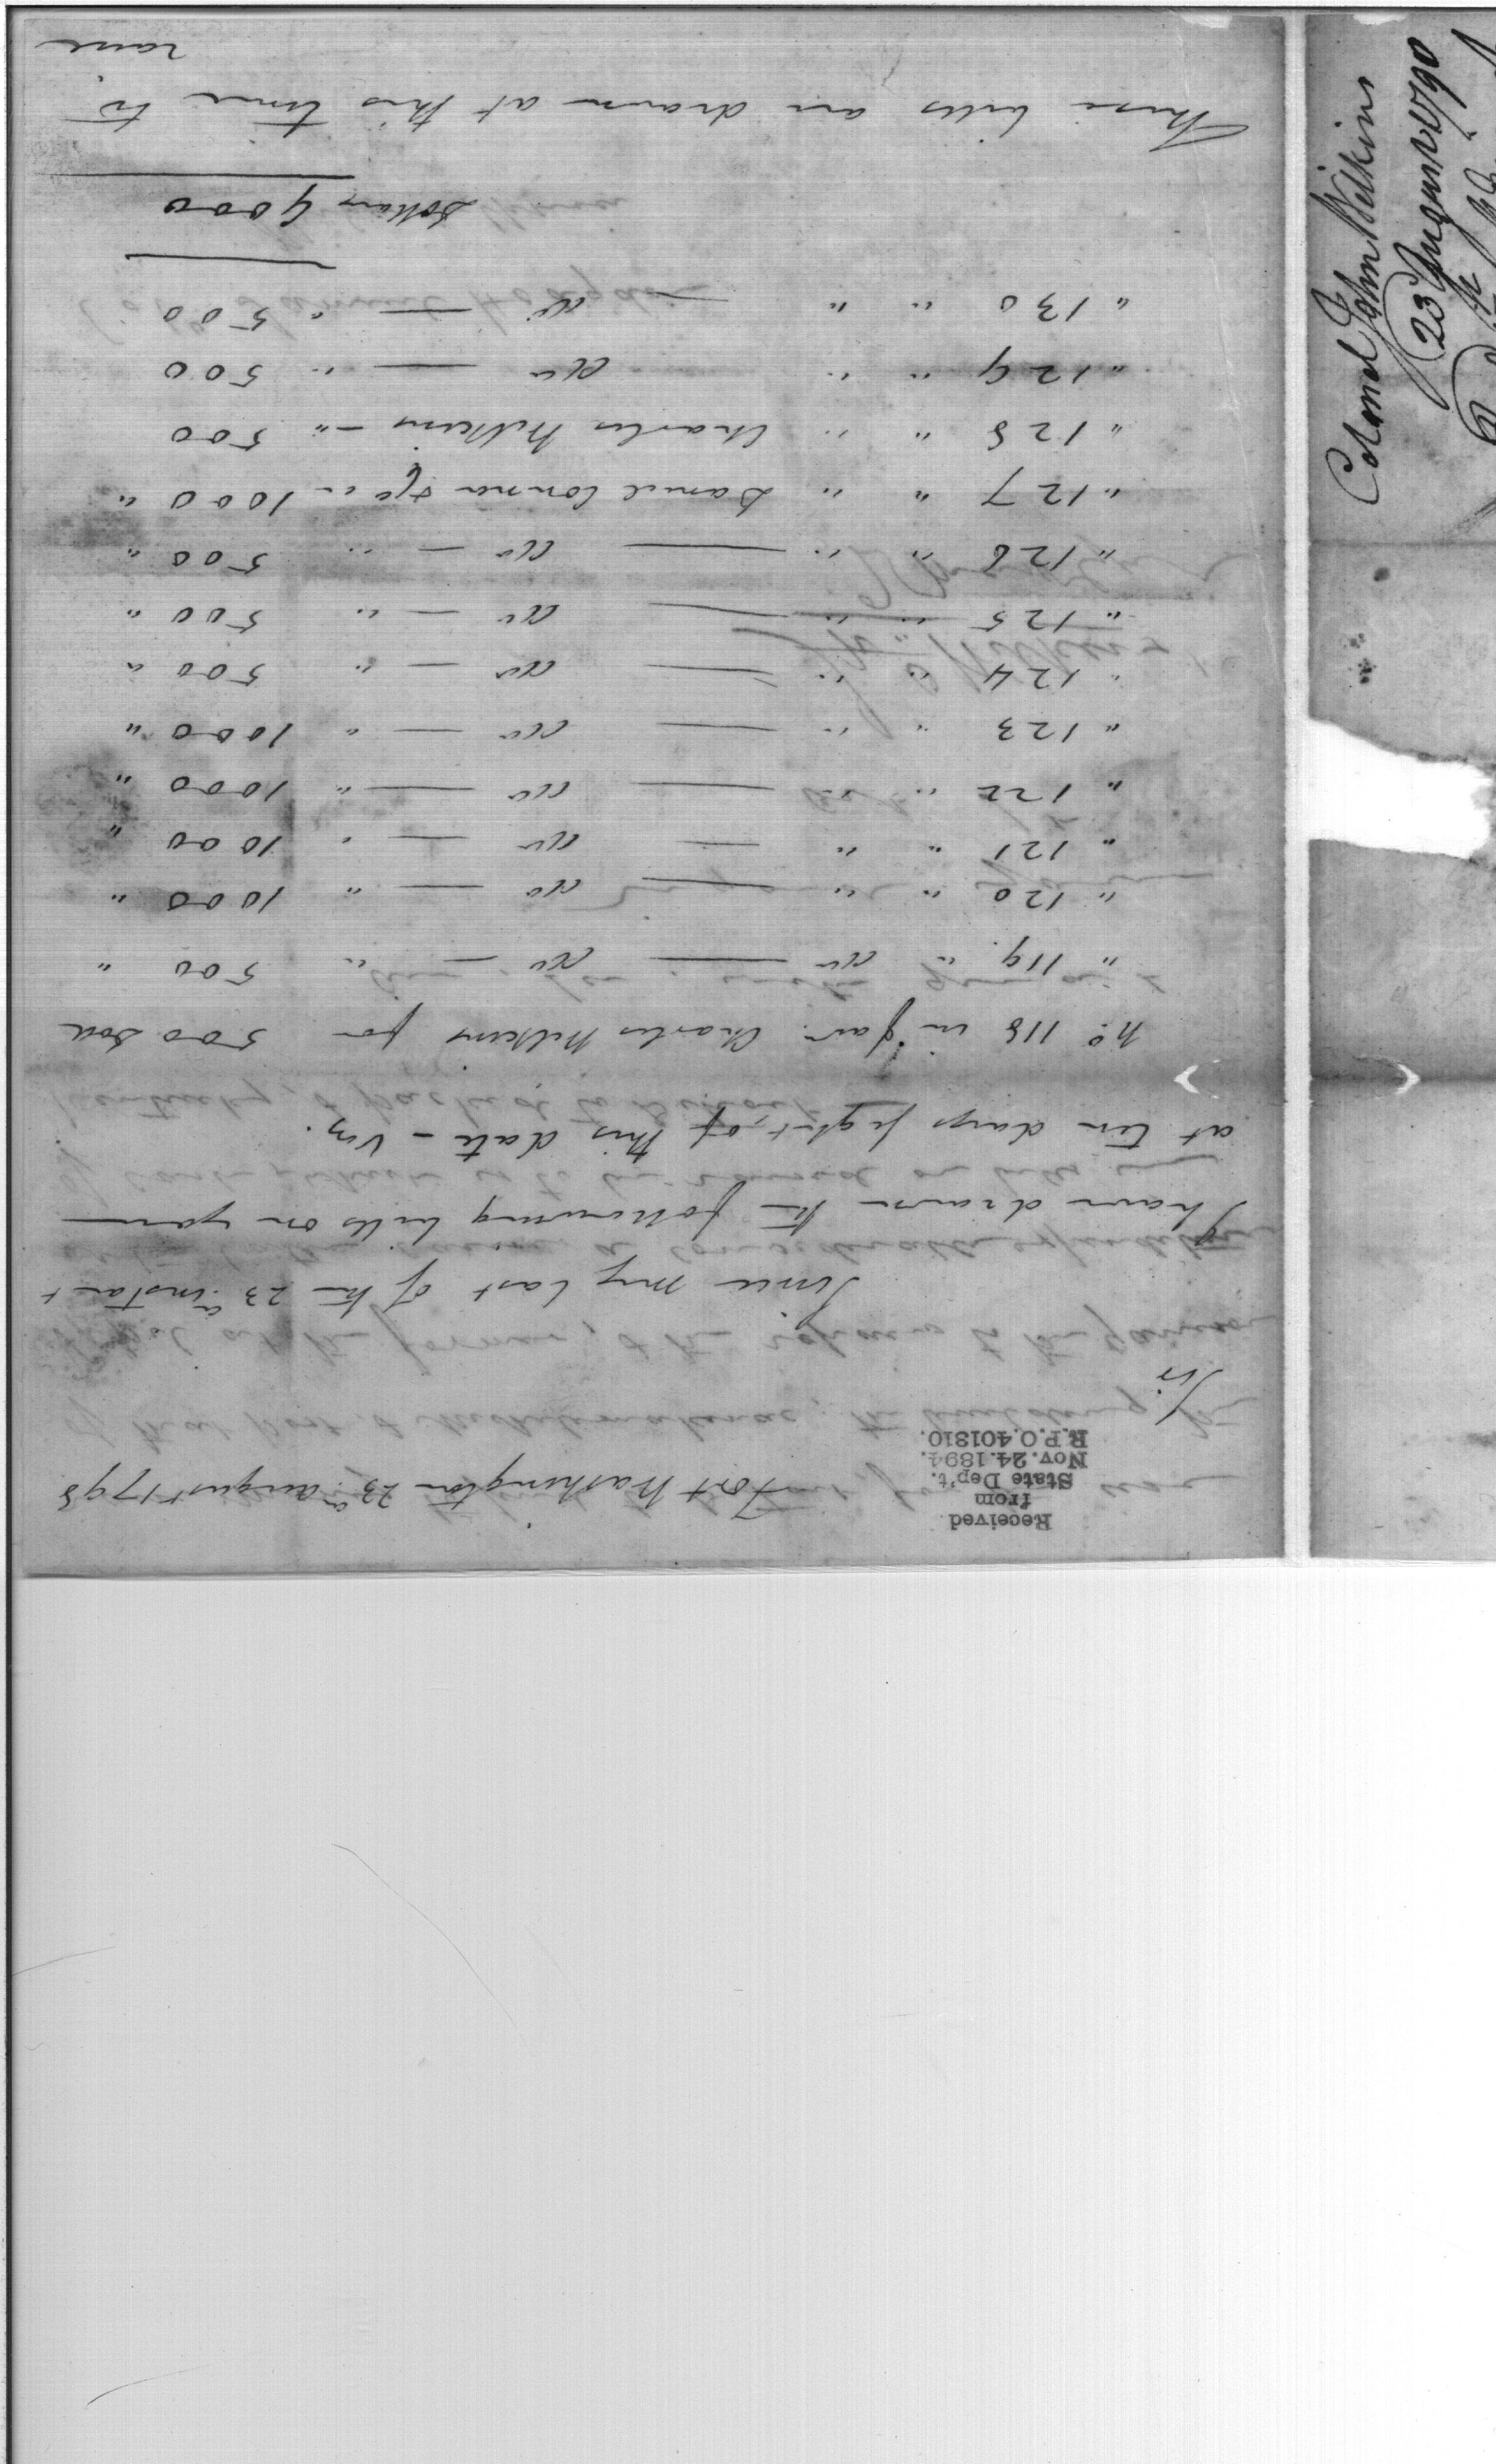 Received
from
State Dep't.
Nov. 24. 1894.
R.P.O. 401810.
Fort Washington 23d. august 1798
Sir
Since my last of the 23d. instant
I have drawn the following bills on you
at ten days sight, of this date - Viz.
No. 118 in fav. Charles Wilkins for 500 Dol
" 119. " do — do — " 500 "
" 120 " " — do — " 1000 "
" 121 " " — do — " 1000 "
" 122 " " — do — " 1000 "
" 123 " " — do — " 1000 "
" 124 " " — do — " 500 "
" 125 " " — do — " 500 "
" 126 " " — do — " 500 "
" 127 " " Daniel Connor & Co " 1000 "
" 128 " " Charles Wilkins - " 500
" 129 " " do — " 500
" 130 " " — do — " 500
Dollars 9000
These bills are drawn at this time to
raise
Colonel John Wilkins
23d August 1798